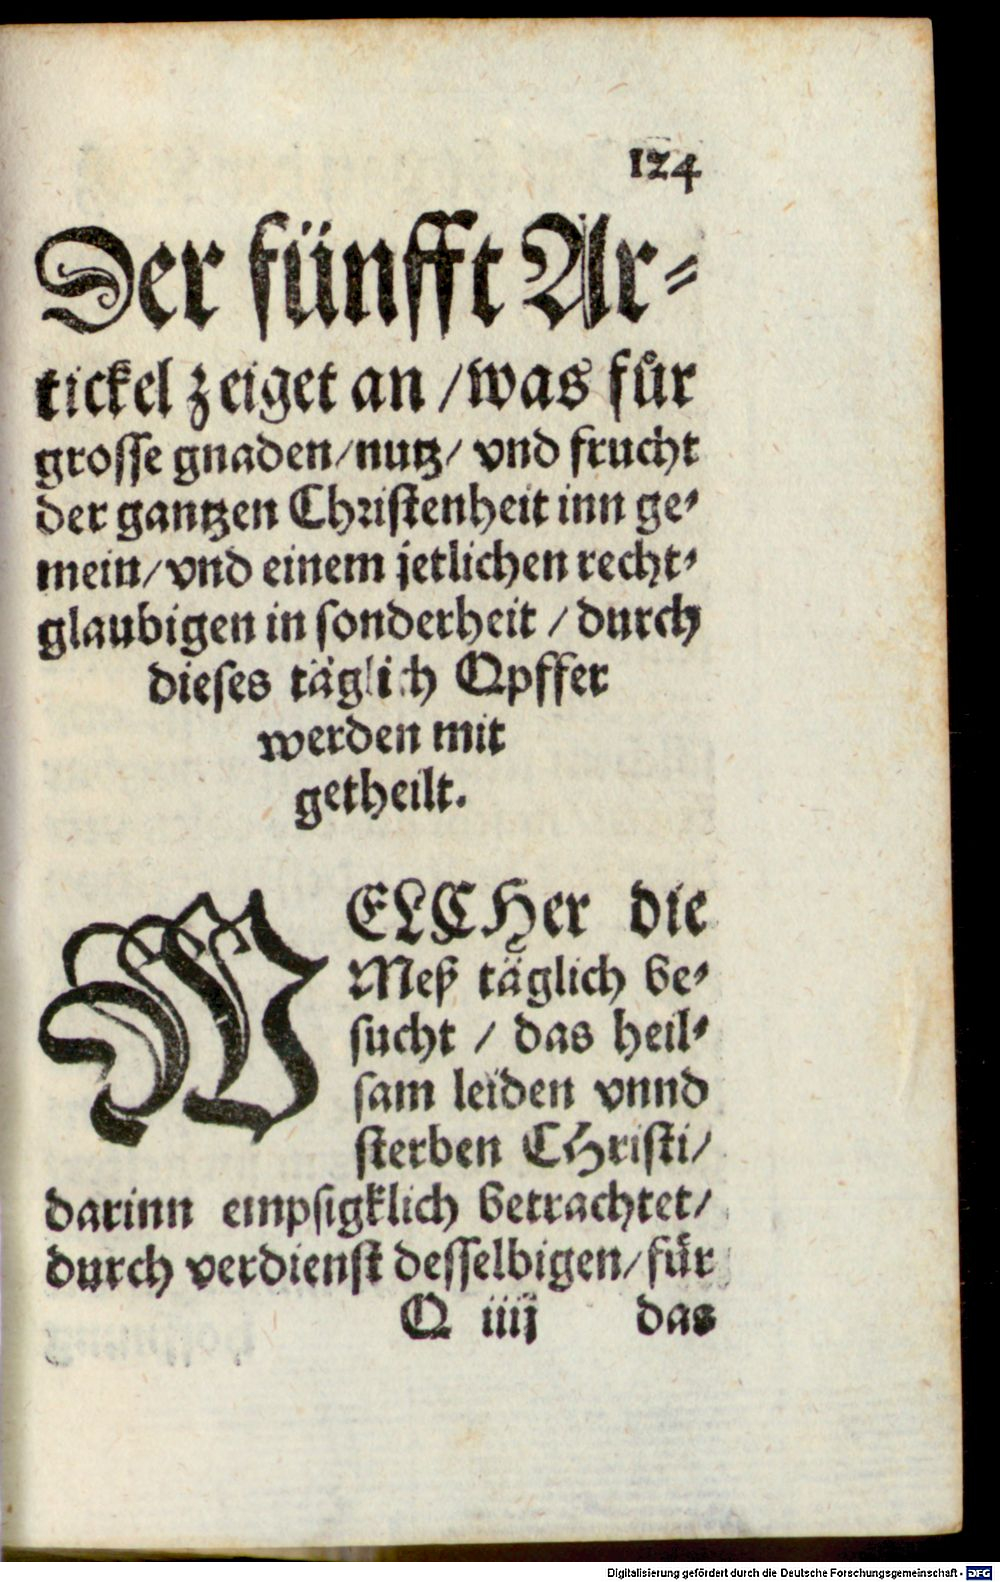 124
Der fünfft Ar⸗
tickel zeiget an / was fuͤr
grosse gnaden / nutz / vnd frucht
der gantzen Christenheit inn ge⸗
mein / vnd einem jetlichen recht⸗
glaubigen in sonderheit / durch
dieses täglich Opffer
werden mit
getheilt.
WELCHer die
Meß täglich be⸗
sucht / das heil⸗
sam leiden vnnd
sterben CHristi /
darinn empsigklich betrachtet /
durch verdienst desselbigen / für
Q iiij das
Digitalisierung gefördert durch die Deutsche Forschungsgemeinschaft - DFG